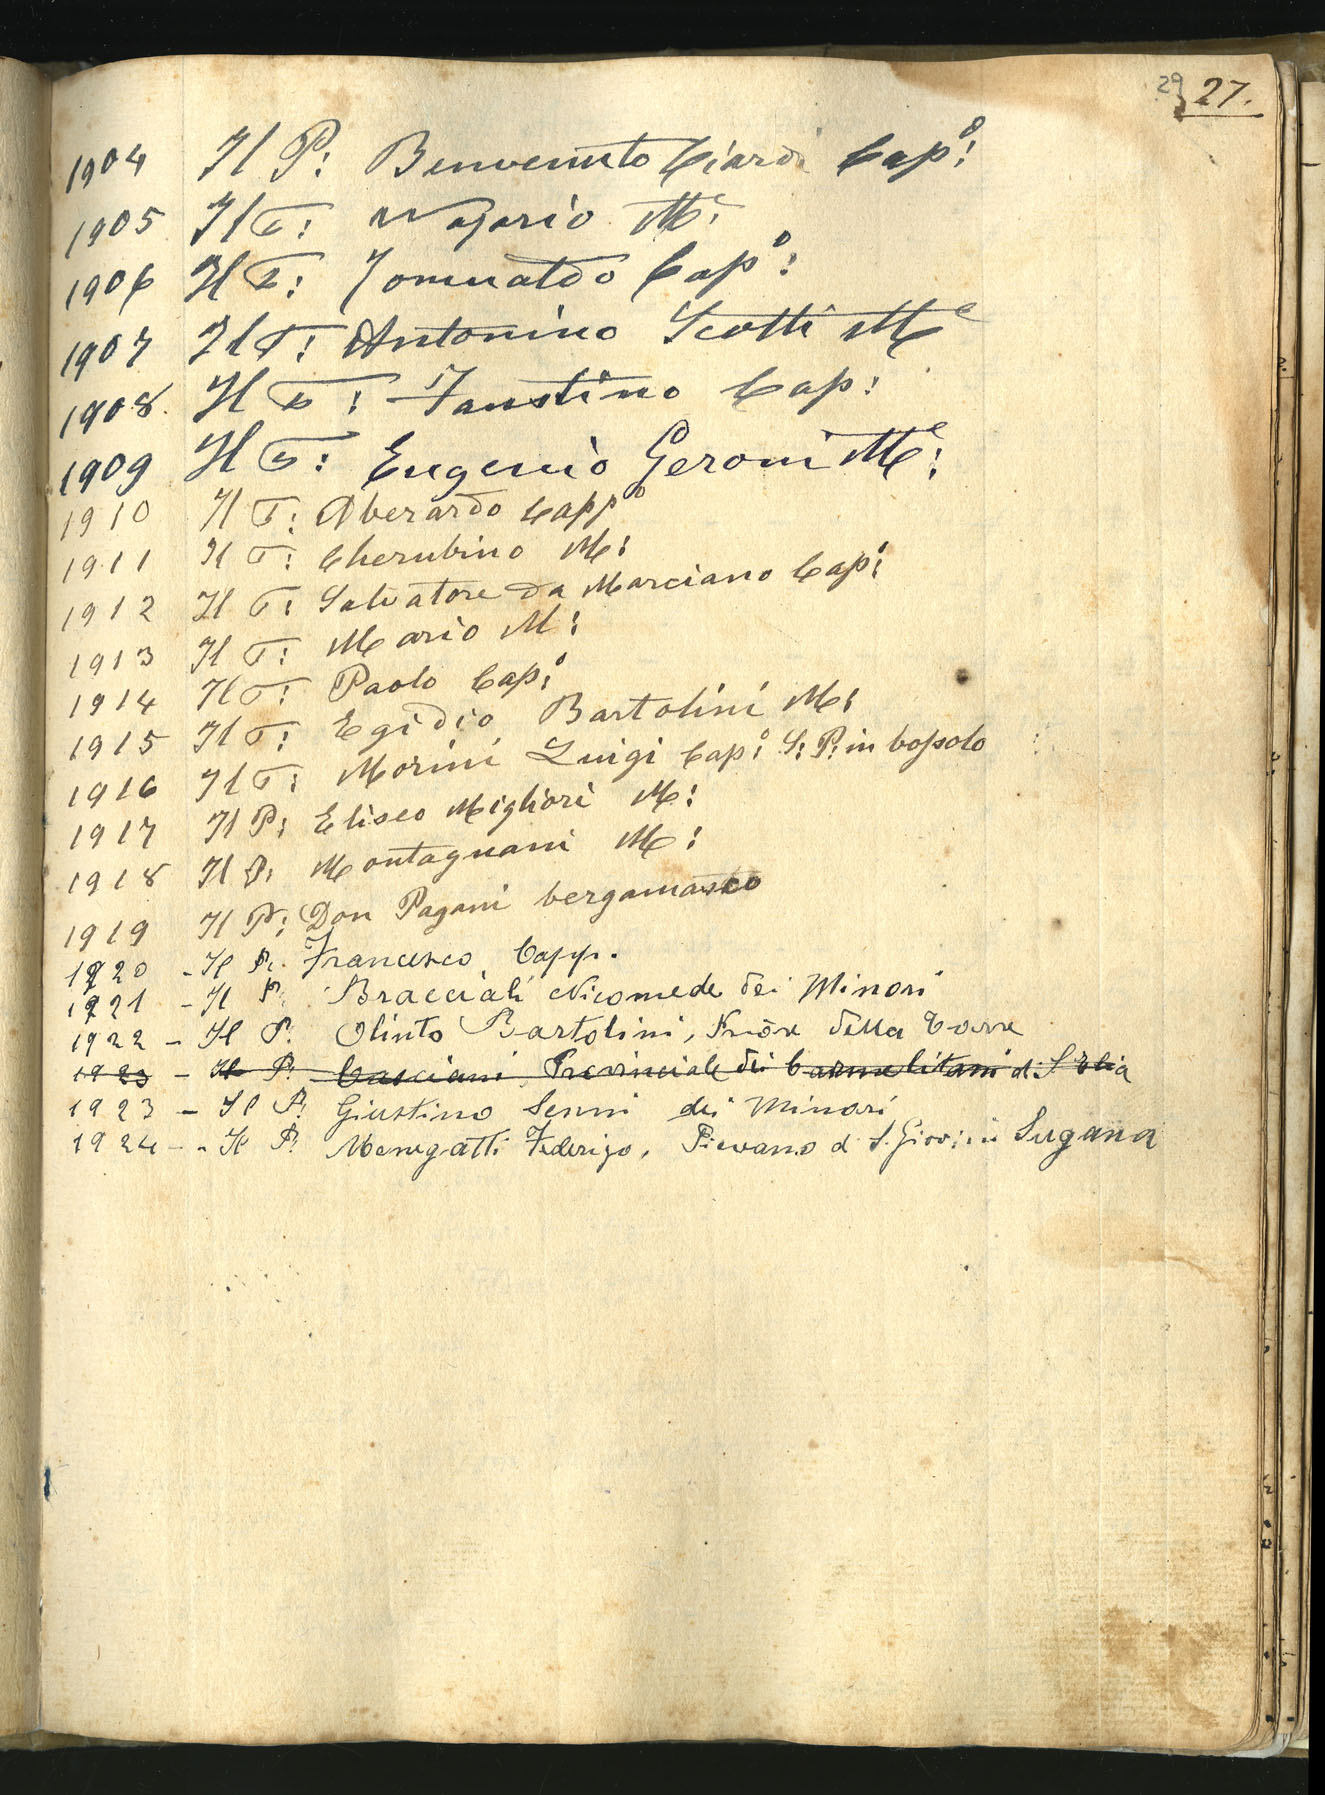 29 27.
1904 Il P: Benvenuto Ciardi Capº:
1905 Il P: Nazario Me:
1906 Il P: Romualdo Capº:
1907 Il P: Antonino Scotti Me
1908. Il P: Faustino Cap:
1909 Il P: Eugenio Geroni Me:
1910 Il P: Aberardo Cappº
1911 Il P: Cherubino M:
1912 Il P: Salvatore da Marciano Capº:
1913 Il P: Mario M:
1914 Il P: Paolo Capº:
1915 Il P: Egidio Bartolini M:
1916 Il P: Morini Luigi Capº: S: P: in Bossolo
1917 Il P: Eliseo Migliori M:
1918 Il P: Montagnani M:
1919 Il P: Don Pagani bergamasco
1920 - Il P. Francesco Capp.
1921 - Il P. Bracciali Nicomede dei Minori
1922 - Il P. Olinto Bartolini, Priore della Torre
1923 - Il P. Casciani Provinciale dei Carmelitani di S Elia
1923 - Il P. Giustino Senni dei Minori
1924 - Il P. Menegatti Federigo, Pievano d S. Giov: in Sugana